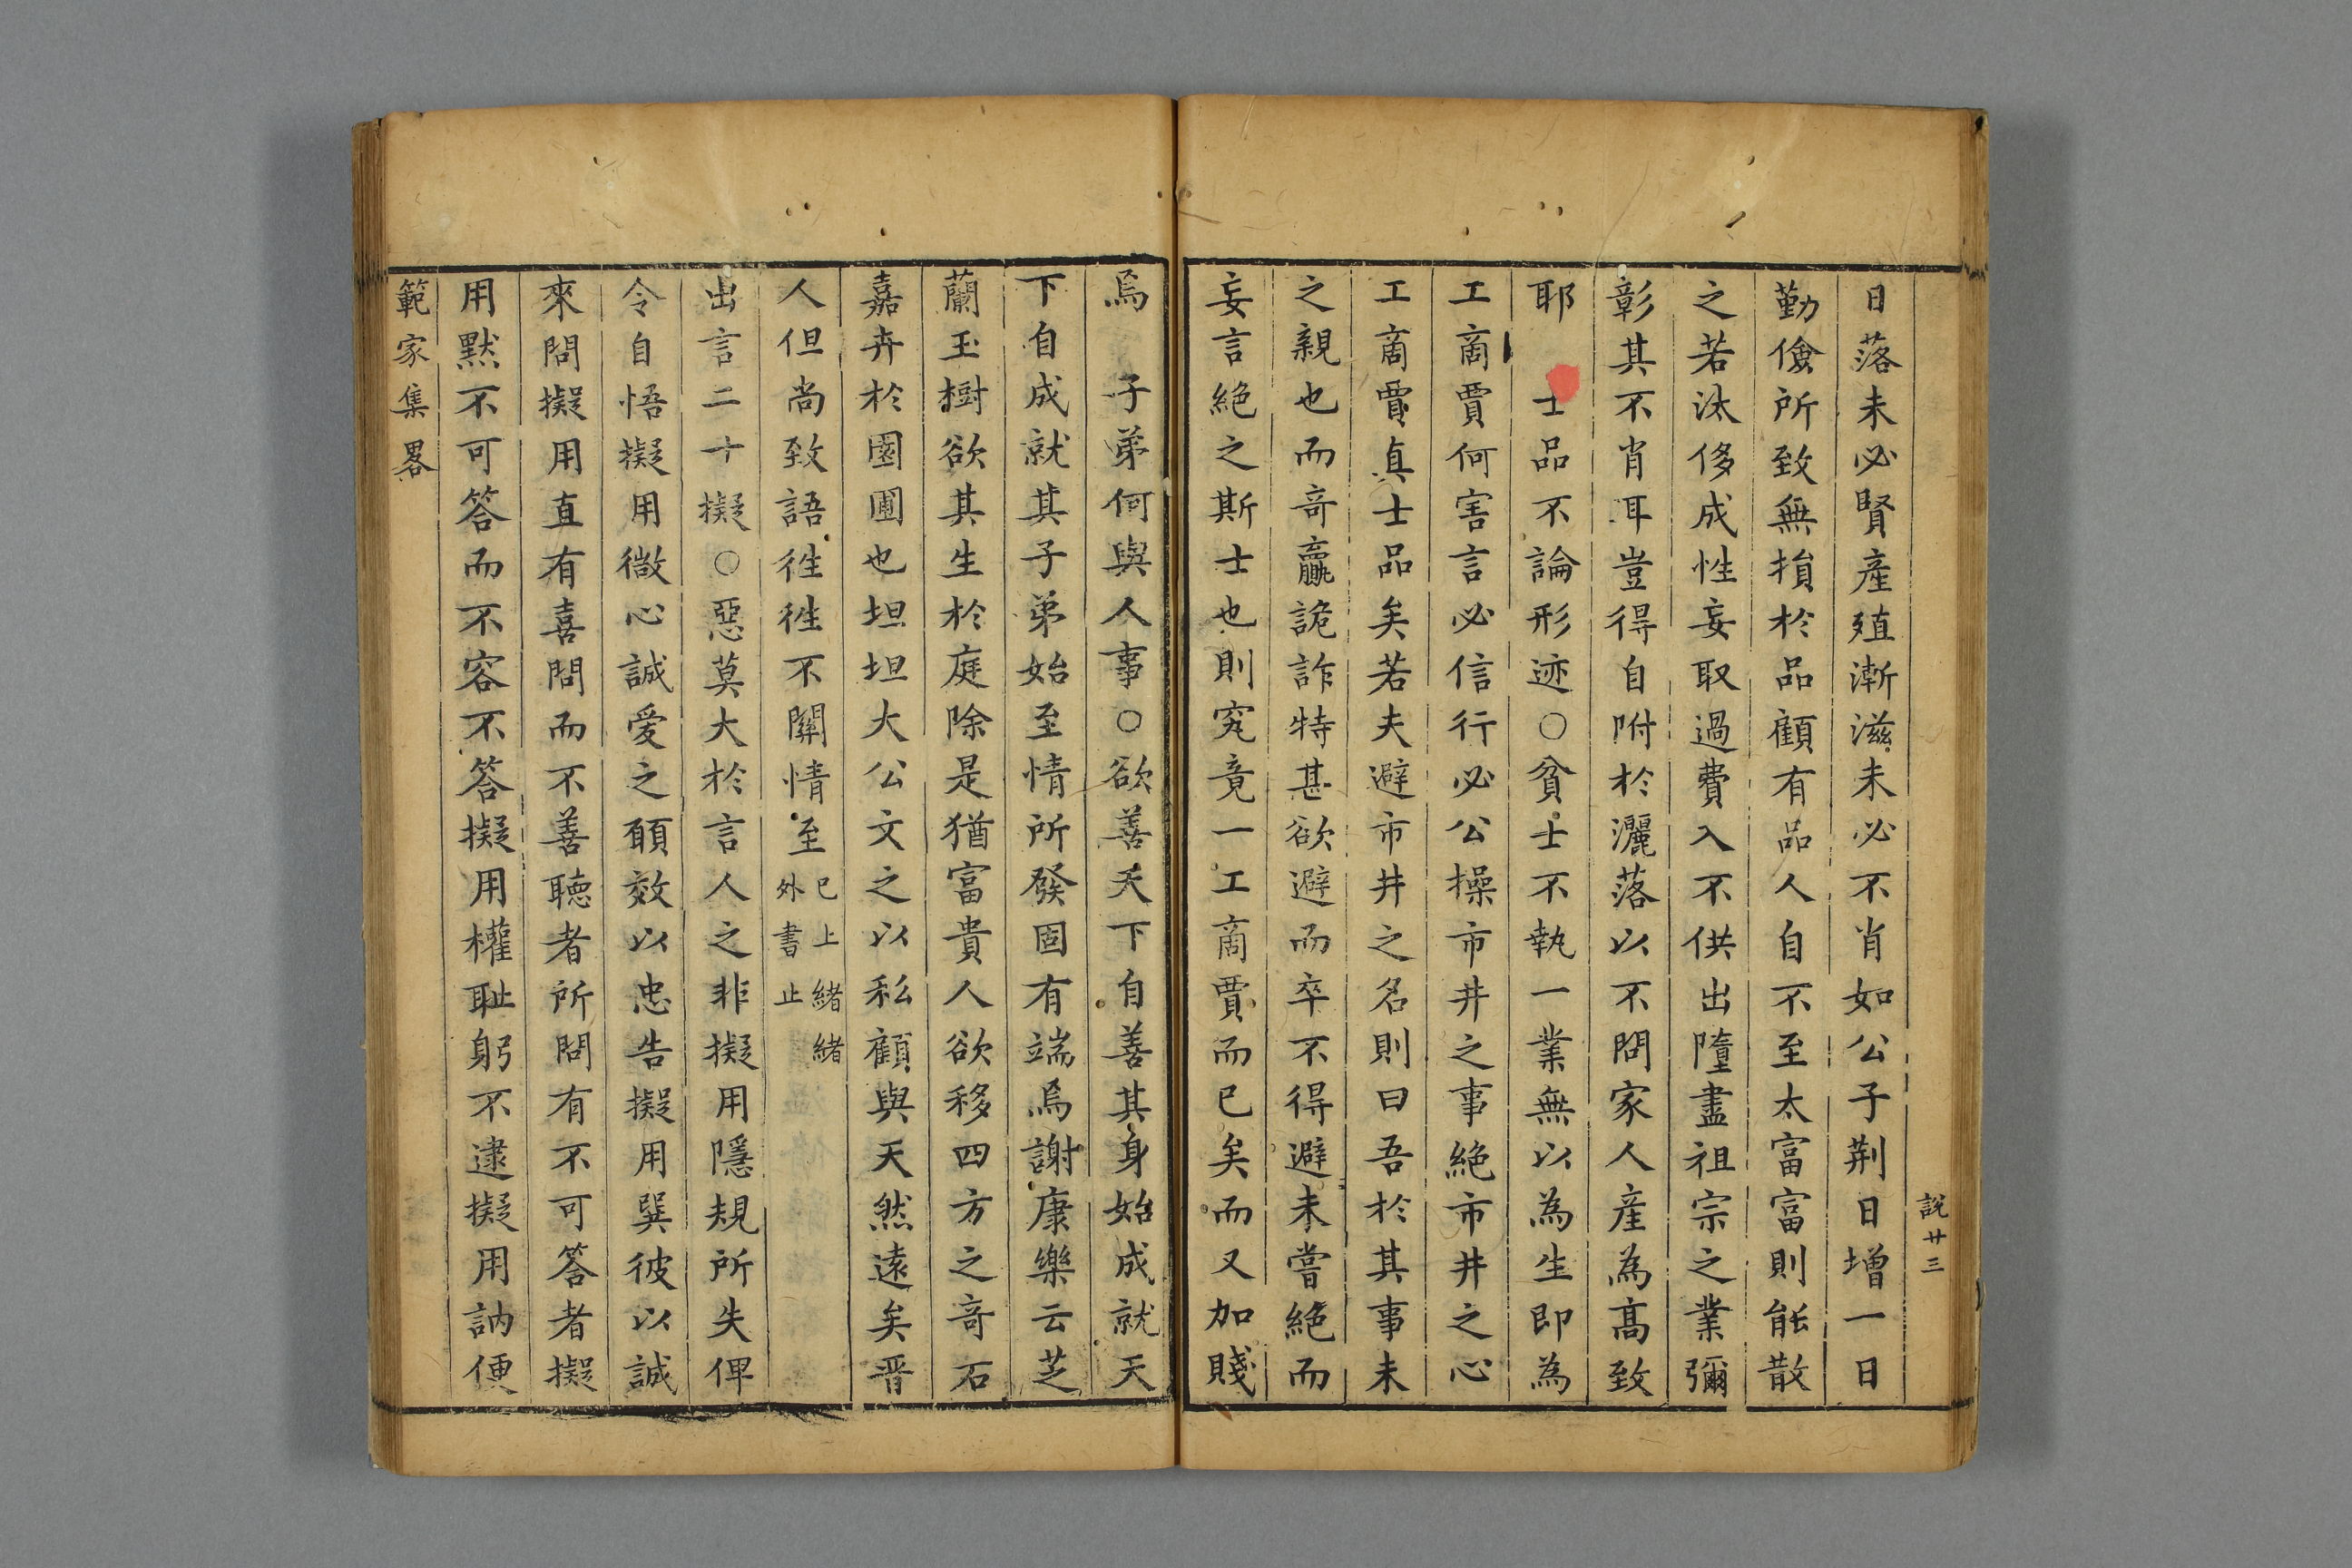 說廿三
日落未必賢產殖漸滋未必不肖如公子荆日增一日
勤儉所致無損於品顧有品人自不至太富富則能散
之若汰侈成性妄取過費入不供出墮盡祖宗之業彌
彰其不肖耳豈得自附於灑落以不問家人產為高致
耶　士品不論形迹○貧士不執一業無以為生即為
工商賈何害言必信行必公操市井之事絕市井之心
工商賈真士品矣若夫避市井之名則曰吾於其事未
之親也而奇贏詭詐特甚欲避而卒不得避未嘗絕而
妄言絕之斯士也則究竟一工商賈而已矣而又加賤
焉　子弟何與人事○欲善天下自善其身始成就天
下自成就其子弟始至情所發固有端焉謝康樂云芝
蘭玉樹欲其生於庭除是猶富貴人欲移四方之奇石
嘉卉於園圃也坦坦大公文之以私顧與天然遠矣晉
人但尚致語徃徃不關情至已上緒緒外書止
出言二十擬○惡莫大於言人之非擬用隱規所失俾
令自悟擬用微心誠愛之願效以忠告擬用巽彼以誠
來問擬用直有喜問而不善聽者所問有不可答者擬
用默不可答而不容不答擬用權恥躬不逮擬用訥便
範家集畧